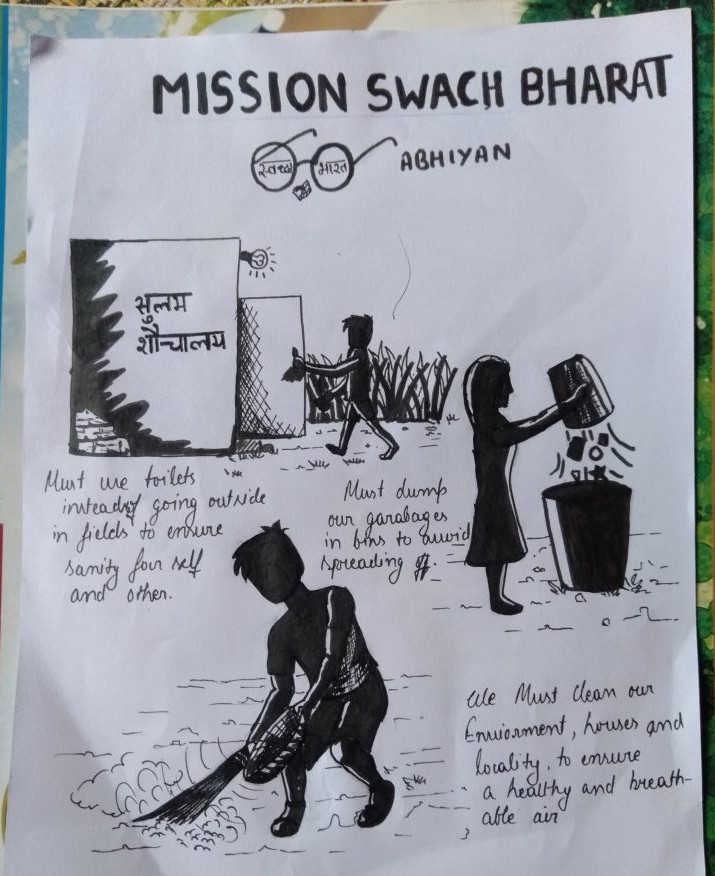 MISSION SWACH BHARAT
स्वच्छ भारत
ABHIYAN
सुलभ
शौचालय
Must use toilets
instead of going outside
in fields to ensure
sanity four self
and other.
Must dump
our garabages
in bins to auvoid
spreading off.
We Must Clean our
Enviorment, houses and
locality, to ensure
a healthy and breath-
able air